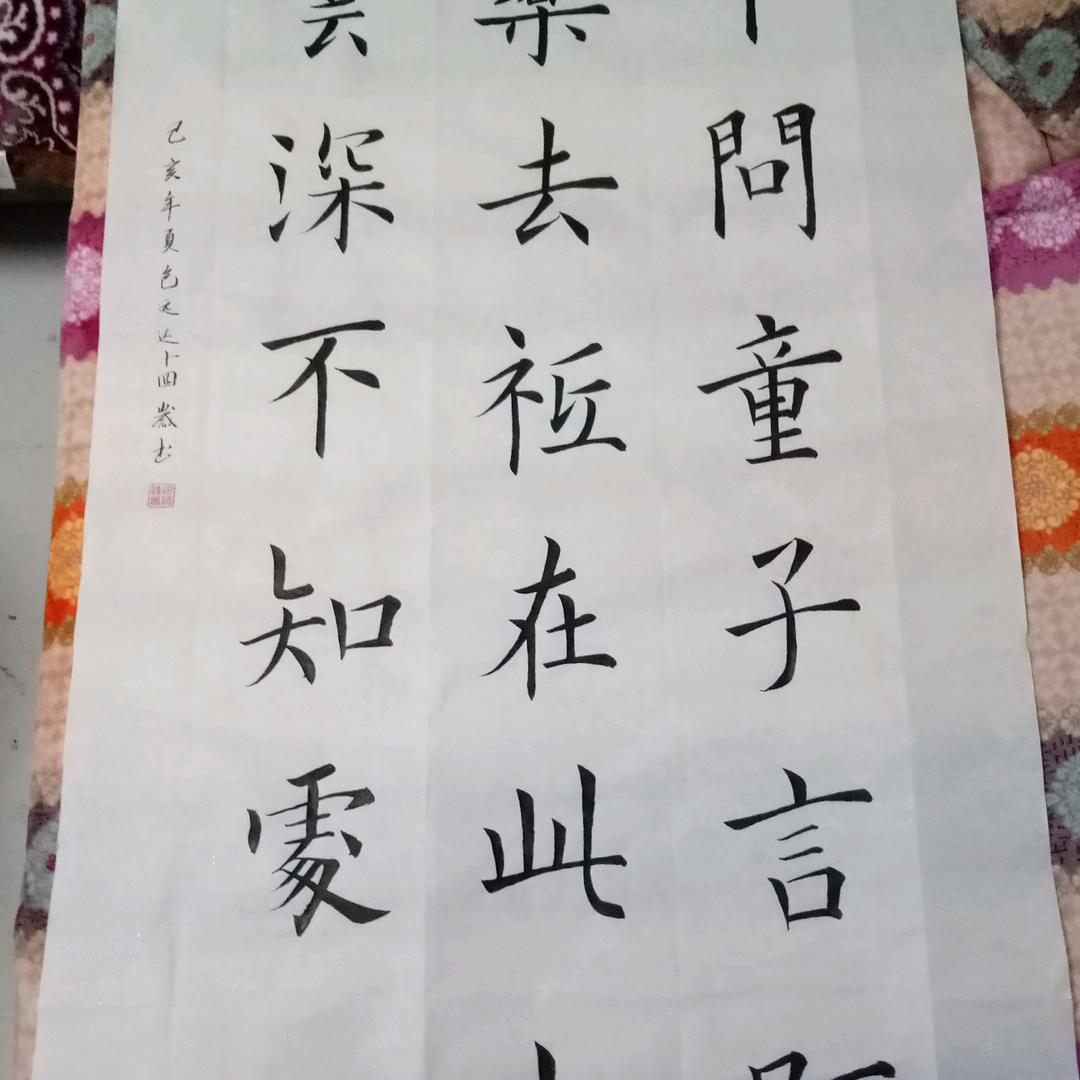 問童子言
藥去祗在此
雲深不知處
己亥年夏包远达十四歲书